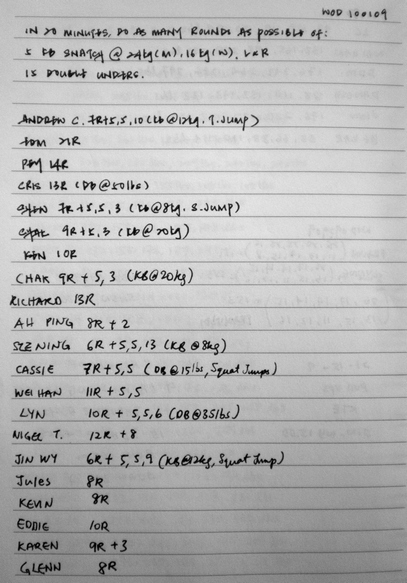 WOD 100109
IN 20 MINUTES, DO AS MANY ROUNDS AS POSSIBLE OF:
5 KB SNATCH @ 24kg(M), 16kg(W), L&R
15 DOUBLE UNDERS.
ANDREW C. 7R+5,5,10 (KB@12kg, T.Jump)
TOM 21R
14R
CRIS 13R (DB@50lbs)
7R +5,5,3 (KB@8kg, S.Jump)
9R +5,3 (KB@20kg)
10R
CHAK 9R + 5,3 (KB@20kg)
RICHARD 13R
AH PING 8R + 2
SZE NING 6R + 5,5,13 (KB@8kg)
CASSIE 7R + 5,5 (DB@15lbs, Squat Jumps)
WEI HAN 11R + 5,5
LYN 10R + 5,5,6 (DB@35lbs)
NIGEL T. 12R +8
JIN WY 6R + 5,5,9 (KB@12kg, Squat Jump)
Jules 8R
KEVIN 8R
EDDIE 10R
KAREN 9R +3
GLENN 8R